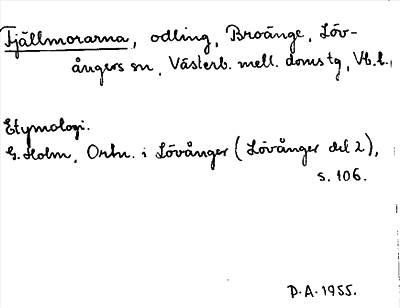 Fjällmorarna, odling, Broänge, Löv-
ångers sn, Västerb. mell. doms tg, Vb. l.
Etymologi.
G. Holm, Ortn. i Lövånger (Lövånger del 2),
s. 106.
D.A. 1955.